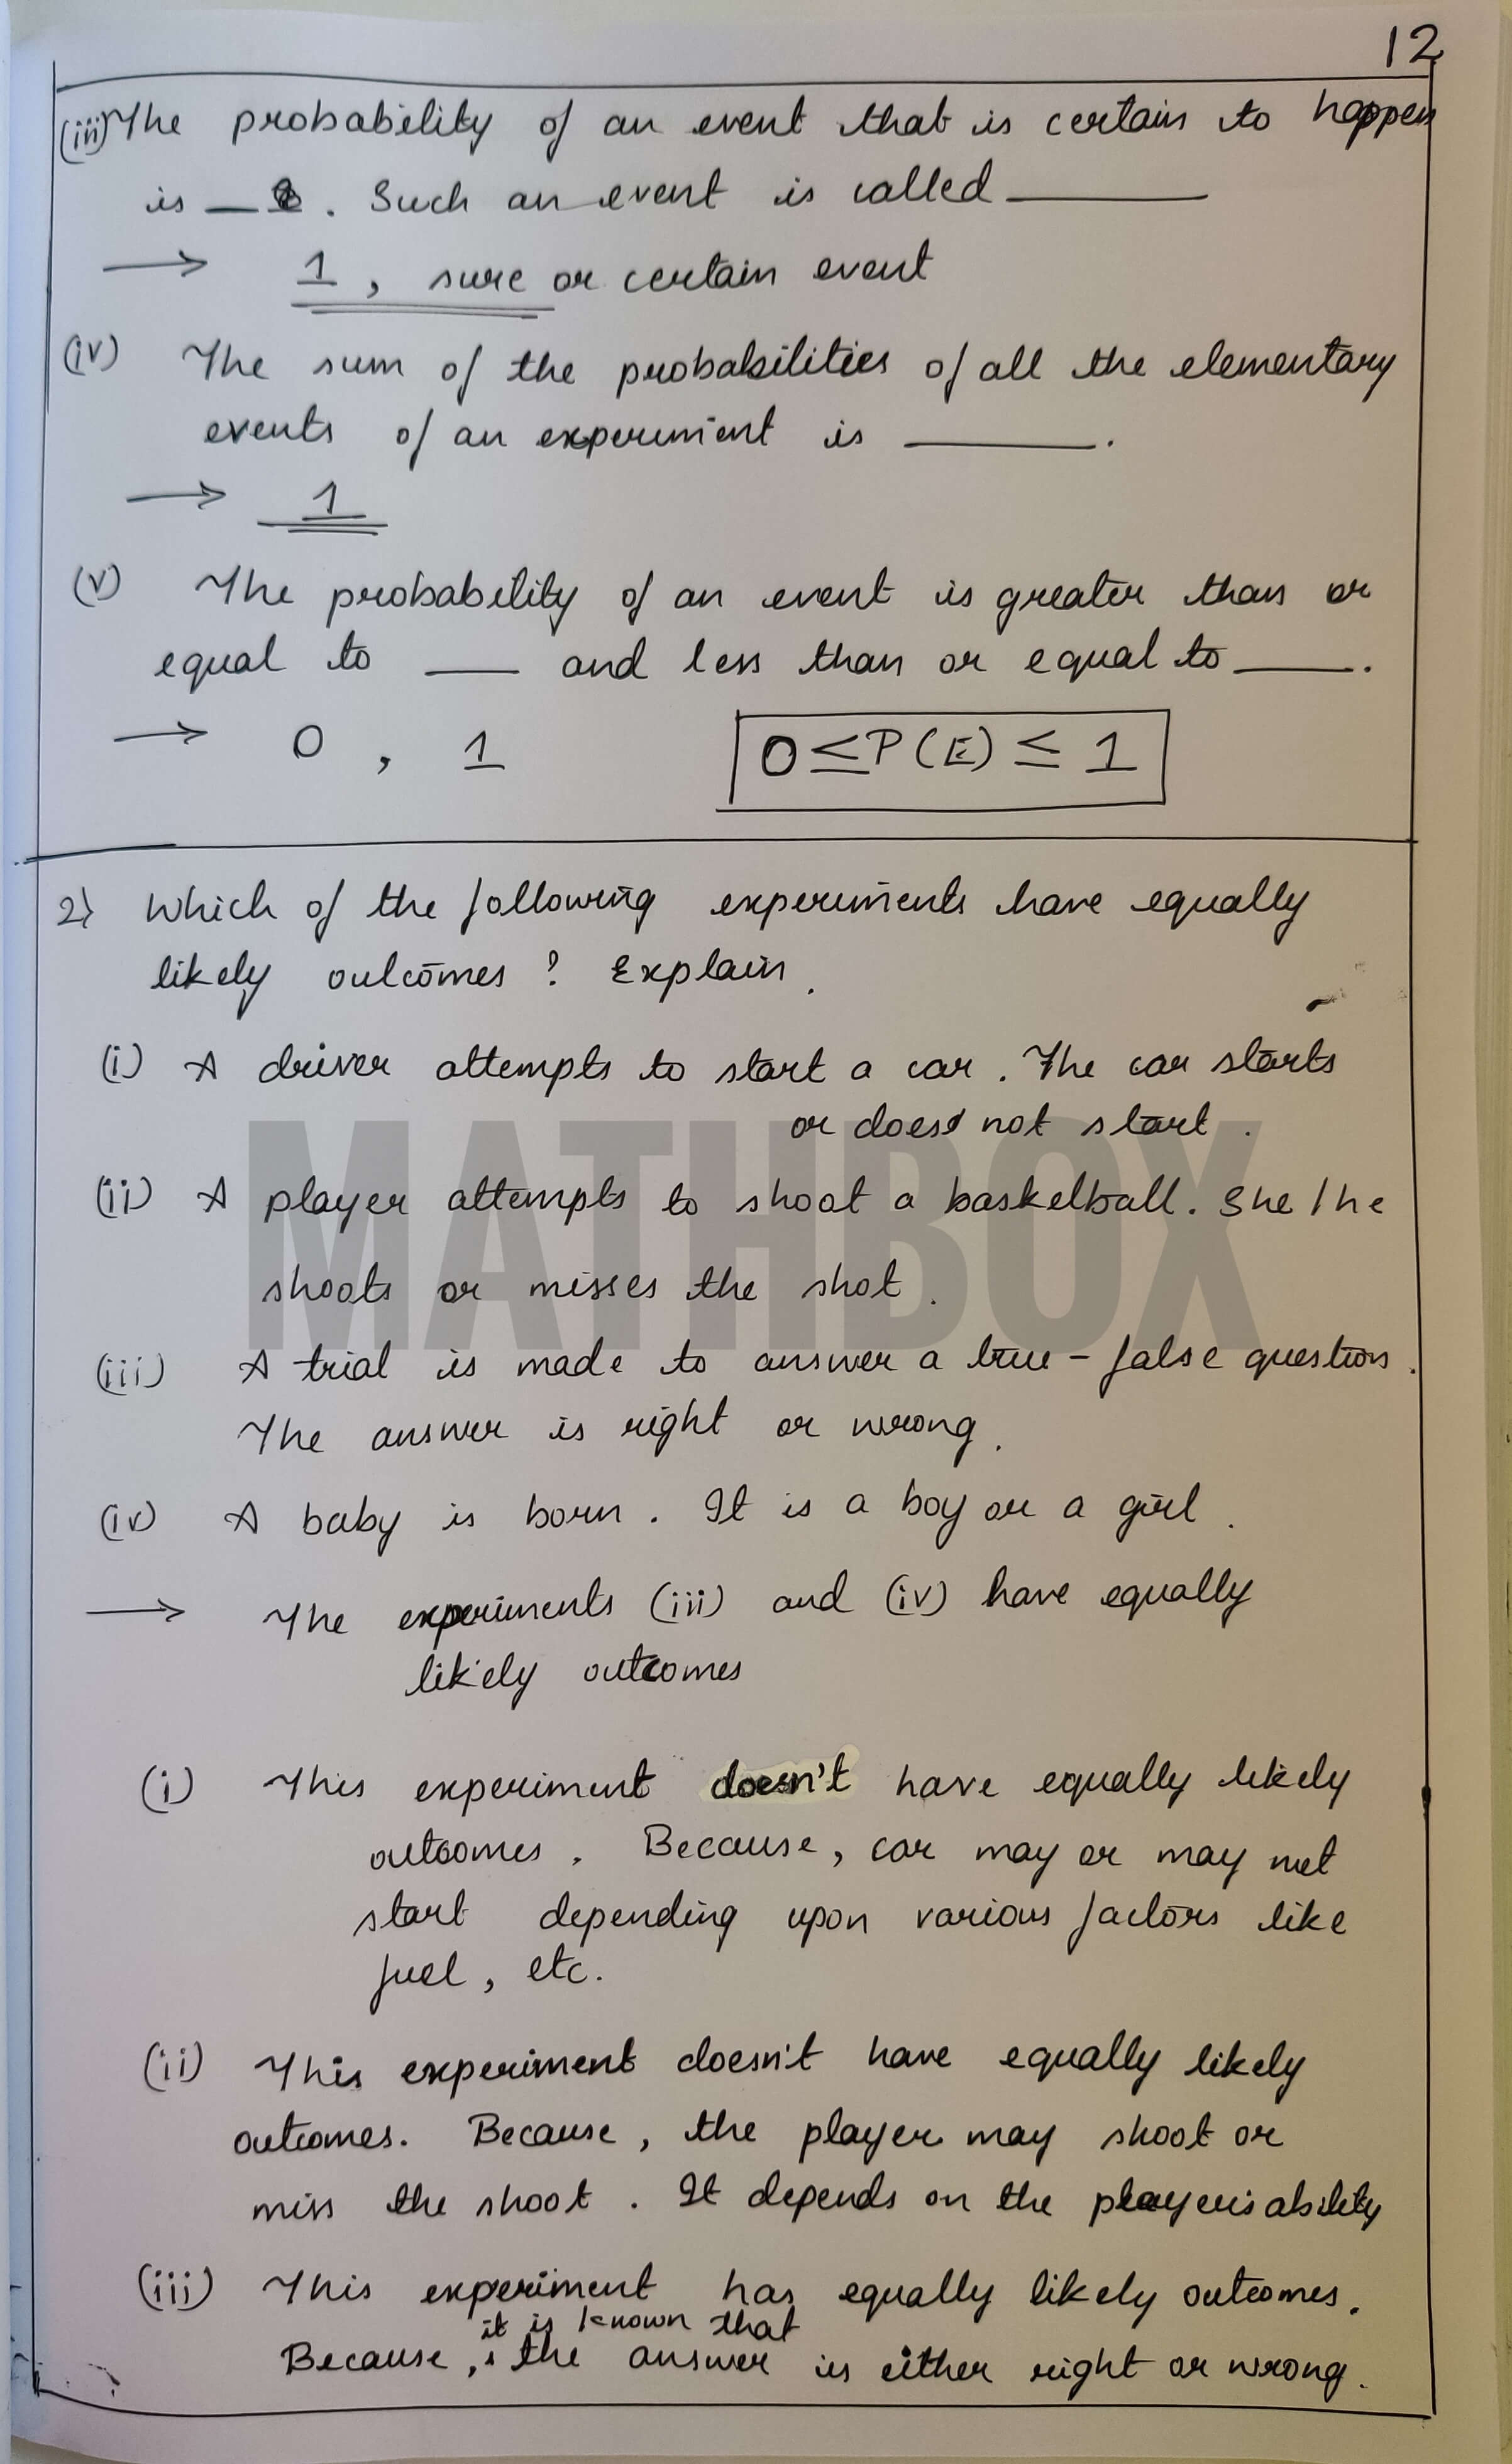 12
(iii) The probability of an event that is certain to happen
is ___. Such an event is called ______
→ 1, sure or certain event
(iv) The sum of the probabilities of all the elementary
events of an experiment is ______.
→ 1
(v) The probability of an event is greater than or
equal to ___ and less than or equal to ____.
→ 0 , 1 0≤P(E) ≤ 1
2) Which of the following experiments have equally
likely outcomes ? Explain.
(i) A driver attempts to start a car. The car starts
or does not start.
(ii) A player attempts to shoot a basketball. She/he
shoots or misses the shot.
(iii) A trial is made to answer a true-false question.
The answer is right or wrong.
(iv) A baby is born. It is a boy or a girl.
→ The experiments (iii) and (iv) have equally
likely outcomes
(i) This experiment doesn't have equally likely
outcomes. Because, car may or may not
start depending upon various factors like
fuel, etc.
(ii) This experiment doesn't have equally likely
outcomes. Because, the player may shoot or
miss the shoot. It depends on the player's ability
(iii) This experiment has equally likely outcomes.
it is known that
Because, the answer is either right or wrong.
MATHBOX